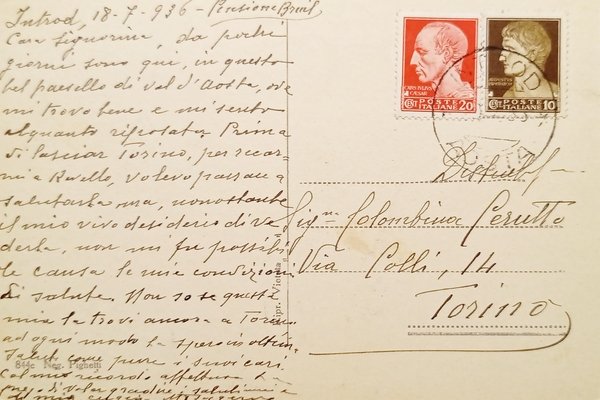 Introd, 18-7-936 - Pensione Breuil
Cara Signorina, da pochi
giorni sono qui, in questo
bel paesello di val d'Aosta, ove
mi trovo bene e mi sento
alquanto riposata. Prima
di lasciar Torino, per recar-
mi a Rivello, volevo passare a
salutarla ma, nonostante
il mio vivo desiderio di ve
derla, non mi fu possibi
le causa le mie condizioni
di salute. Non so se questa
mia la trovi ancora a Torino
ad ogni modo la spero in ottima
salut come pure i suoi cari
Col mio ricordo affettuoso la
prego di voler gradire i saluti
CAIVS IVLIVS
CAESAR
POSTE
ITALIANE 20
POSTE
ITALIANE 10
AOSTA
Sig.na Colombina Cerutto
Via Colli, 14
Torino
844c Neg. Pighetti